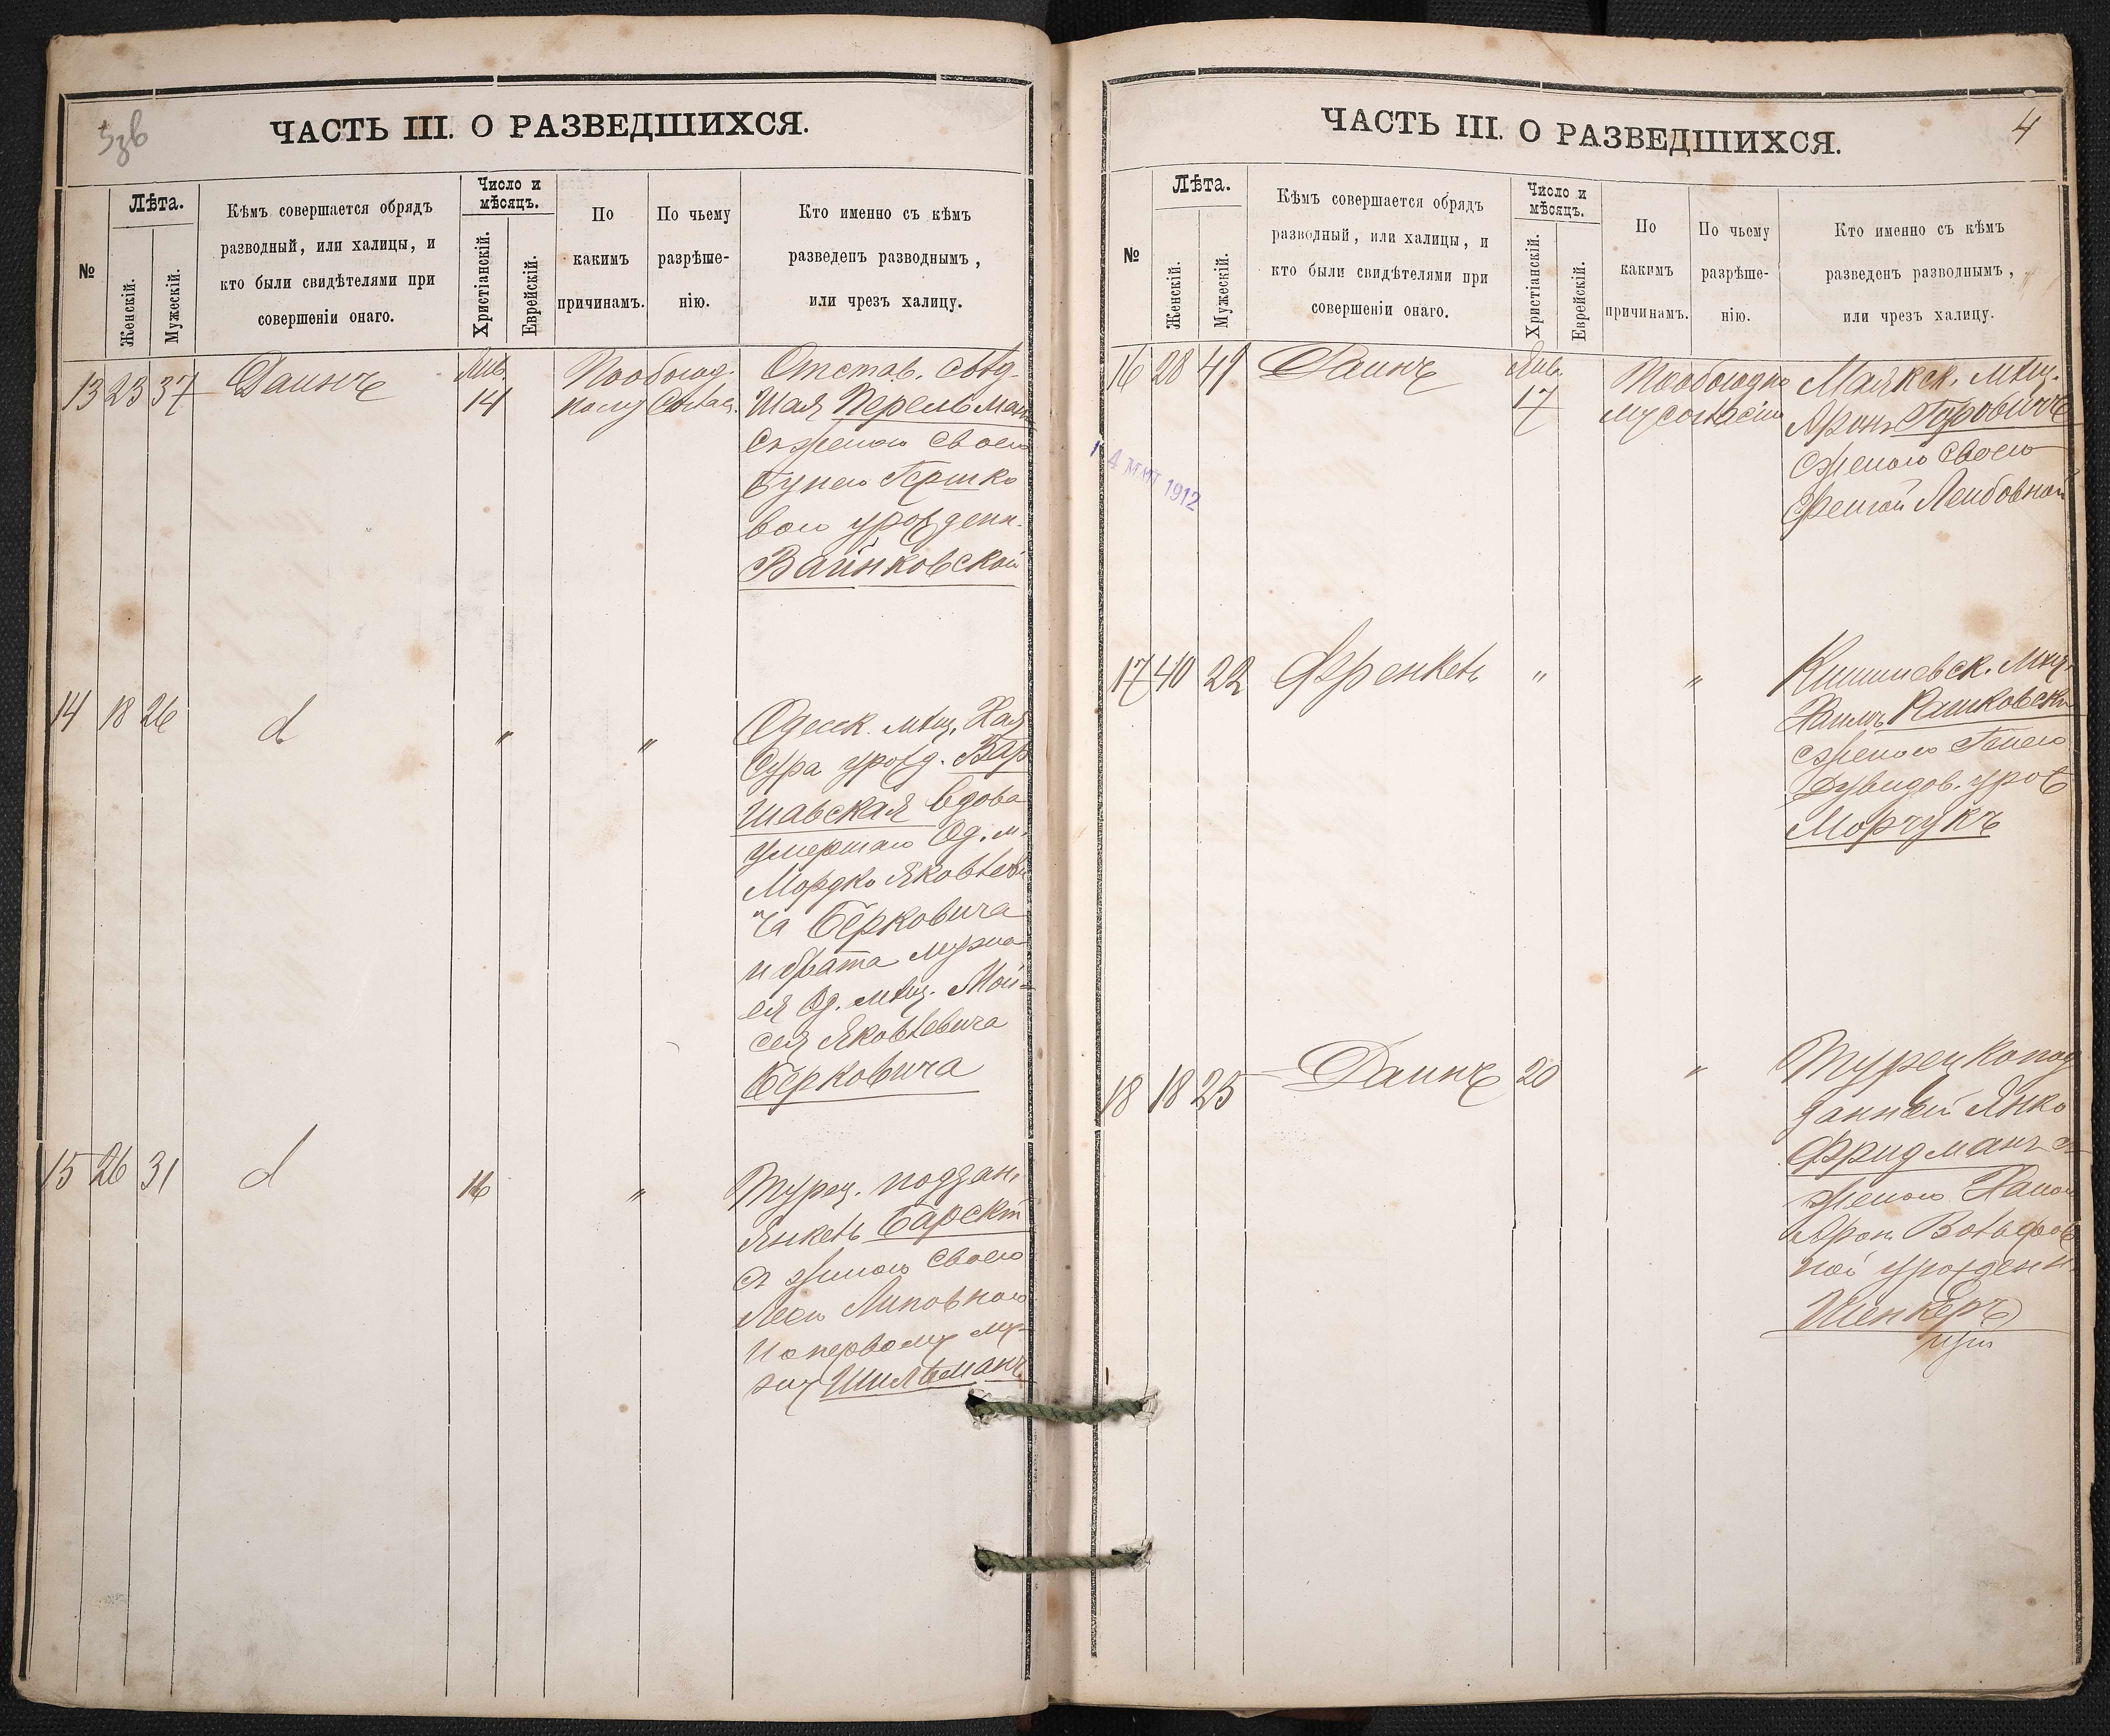 3зв
ЧАСТЬ III. О РАЗВЕДШИХСЯ.
№
Лѣта.
Женскій.
Мужескій.
Кѣмъ совершается обрядъ
разводный, или халицы, и
кто были свидѣтелями при
совершеніи онаго.
Число и
мѣсяцъ.
Христіанскій.
Еврейскій.
По
какимъ
причинамъ.
По чьему
разрѣше-
нію.
Кто именно съ кѣмъ
разведенъ разводнымъ,
или чрезъ халицу.
13 23 37 Даинъ
Янв.
14
Пообоюд.
ному Соглас.
Отстав.
Шая Перельман
съ женою своею
Бунею Гершко
вою урожденн.
Вайнковской
14 18 26 d " "
Одесск. мѣщ. Хая
Сура урожд. Вар
шавская вдова
умершаго Од. м.
Мордко Яковлеви
ча Берковича
и брата мужа
ея Од. мѣщ. Мой-
сея Яковлевича
Берковича
15 26 31 d 16 "
Турец. поддан.
Янкель Барскій
съ женою своею
Леею Липовною
По первому му-
жу Шильманъ
4
ЧАСТЬ III. О РАЗВЕДШИХСЯ.
№
Лѣта.
Женскій.
Мужескій.
Кѣмъ совершается обрядъ
разводный, или халицы, и
кто были свидѣтелями при
совершеніи онаго.
Число и
мѣсяцъ.
Христіанскій.
Еврейскій.
По
какимъ
причинамъ.
По чьему
разрѣше-
нію.
Кто именно съ кѣмъ
разведенъ разводнымъ,
или чрезъ халицу.
16 28 41 Даинъ
Янв.
17
Пообоюдно
му согласію
Маякск. мѣщ.
Аронъ Гуровичъ
сженою своею
Фейгой Лейбовной
1912
17 40 22 Френкель " "
Кишиневск. мѣщ.
Хаимъ Рашковскій
сженою Генею
Дувидов. урож
Морчукъ
18 18 25 Даинъ 20 "
Турецкопод
данный Янко
Фридманъ съ
женою Ханою
Арон
ной урожденн.
Шенкеръ